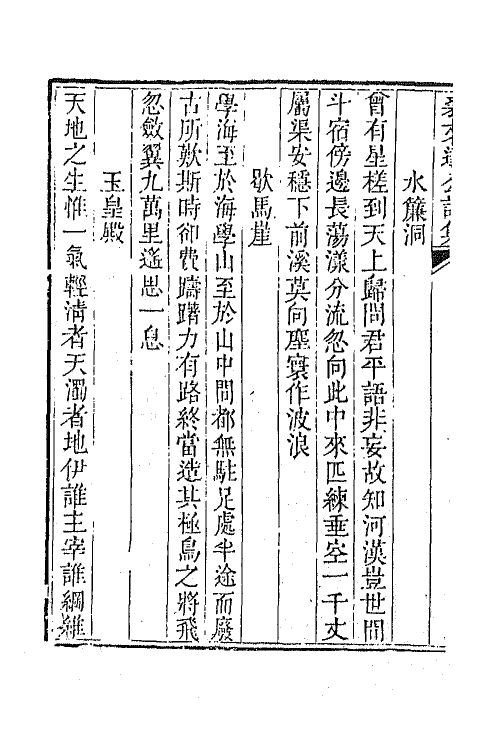 水簾洞
曾有星槎到天上歸問君平語非妄故知河漢豈世間
斗宿傍邊長蕩漾分流忽向此中來匹練垂空一千丈
屬渠安穩下前溪莫向塵寰作波浪
歇馬崖
學海至於海學山至於山中間都無駐足處半途而廢
古所歎斯時卻費躊躇力有路終當造其極鳥之將飛
忽斂翼九萬里遙思一息
玉皇殿
天地之生惟一氣輕清者天濁者地伊誰主宰誰綱維